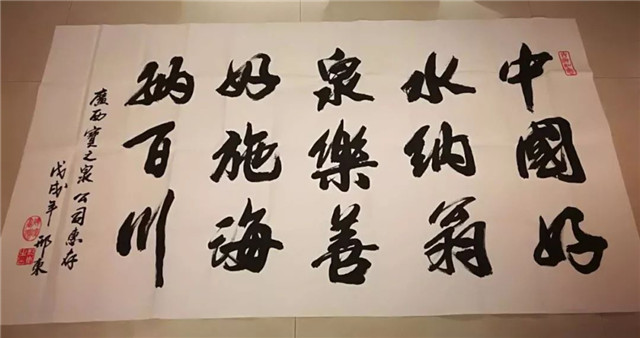 中國好
水纳翁
泉樂善
好施海
纳百川
廣西寶之泉公司惠存
戊戌年 邢東